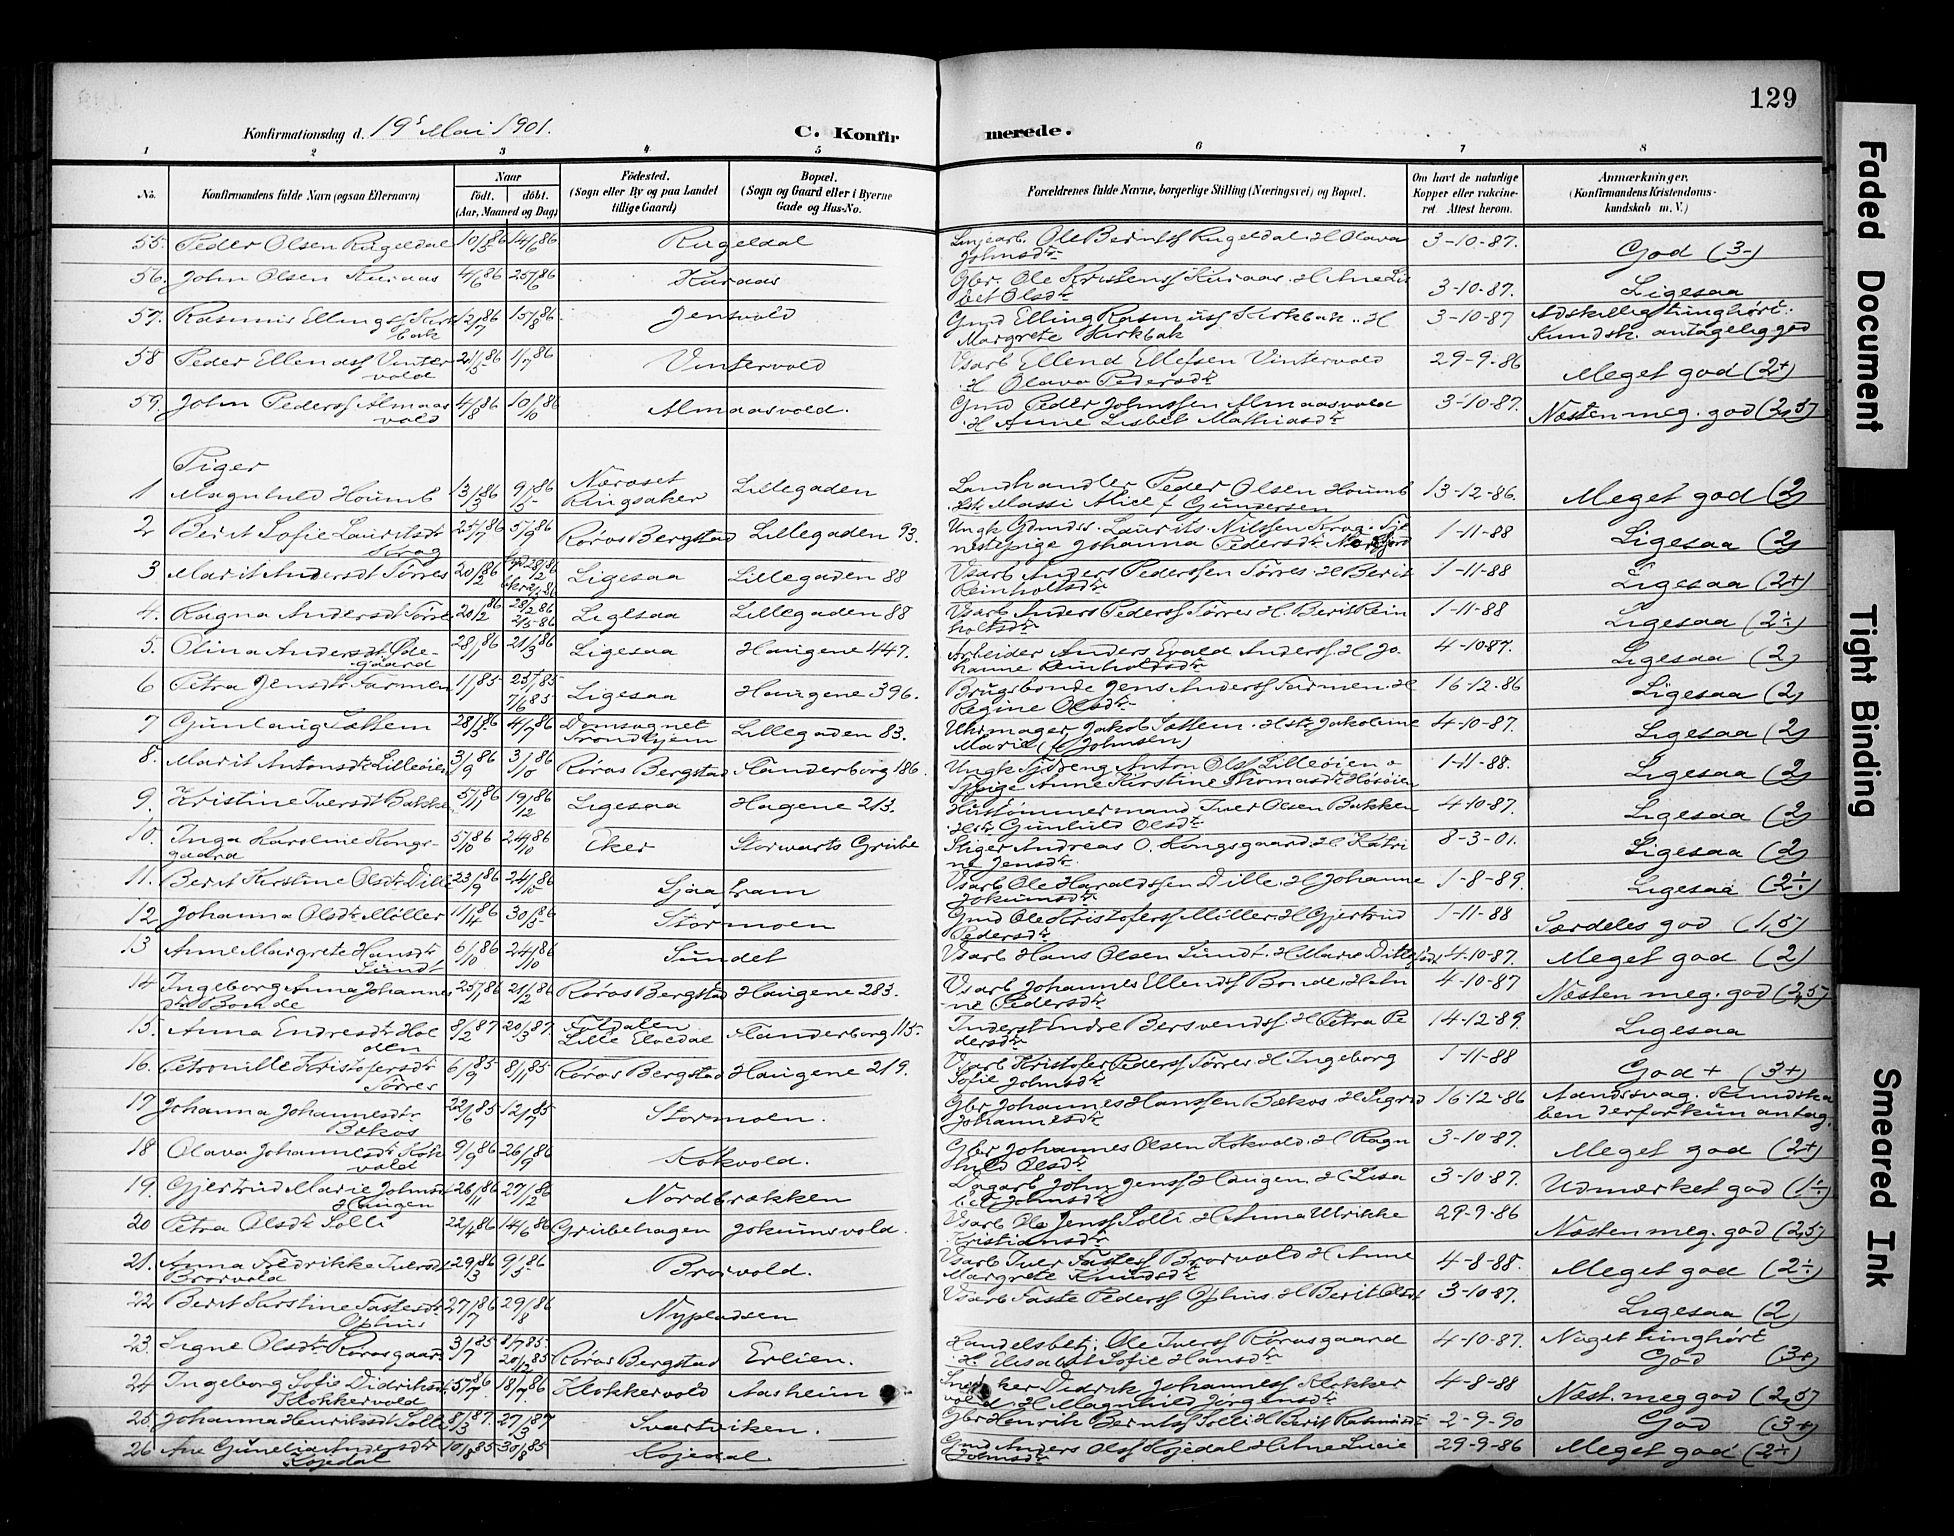 129
Konfirmationsdag d. 19de Mai 1901.
C. Konfirmerede.
1 2 3 4 5 6 7 8
No. Konfirmandens fulde Navn (ogsaa Efternavn) Naar Født. døbt. (Aar, Maaned og Dag) Fødested. (Sogn eller By og paa Landet tillige Gaard) Bopæl. (Sogn og Gaard eller i Byerne Gade og Hus-No. Forældrenes fulde Navne, borgerlige Stilling (Næringsvei) og Bopæl. Om havt de naturlige Kopper eller vakcineret. Attest herom. Anmærkninger. (Konfirmandens Kristendomskundskab m. V.)
55. Peder Olsen Rugeldal 10/5 86 14/6 86 Rugeldal Linjearb. Ole Berntsf Rugeldal. H Olava Johnsdtr 3-10-87. God (3-)
56. John Olsen Kuraas 4/6 86 25/6 86 Kuraas Gbr. Ole Kristensf Kuraas. H Ane Lisbet Olsdtr 3-10-87. Ligesaa
57. Rasmus Ellingsf Kirkbak 12/7 86 15/8 86 Jensvold Gmd Elling Rasmusf Kirkbak. H Margrete Kirkbak 3-10-87 Adskillig tunghørt. Kundsk. antagelig god
58 Peder Ellendsf Vintervold 21/5 86 1/7 86 Vintervold Vsarb Ellend Ellefsen Vintervold H Olava Pedersdtr 29-9-86 Meget god (2+)
59. John Pedersf Almaasvold 4/8 86 10/10 86 Almaasvold. Gmd Peder Johnssen Almaasvold H Anne Lisbet Mathiasdtr 3-10-87. Næsten meg. god (2,5)
Piger
1 Magnhild Houmb 13/3 86 9/5 86 Næroset Ringsaker Lillegaden Landhandler Peder Olsen Houmb Hst. Massi Alice f Gundersen 13-12-86. Meget god (2)
2 Berit Sofie Lauritsdtr Krog 25/7 86 5/9 86 Røros Bergstad Lillegaden 93. Ungk Gdmds. Laurits Nilssen Krog. Tjenestepige Johanna Pedersdtr 1-11-88 Ligesaa (2)
3 Marit Andersdt Tørres 20/2 86 Ligesaa Lillegaden 88 Vsarb Anders Pederssen Tørres. H Berit Reinholtsdtr 1-11-88 Ligesaa (2+)
4. Ragna Andersdt Tørres 20/2 86 28/2 86 2/5-86 Ligesaa Lillegaden 88 Vsarb Anders Pedersf Tørres H. Berit Reinholtsdtr 1-11-88 Ligesaa (2÷)
5. Olina Andersdt Ødegaard 28/1 86 21/3 86 Ligesaa Haugene 447. Arbeider Anders Evald Andersf H Johanne Reinholdsdtr 4-10-87. Ligesaa (2)
6 Petra Jensdtr Farmen 1/1 85 7/6 85 Ligesaa Haugene 396. Brugsbonde Jens Andersf Farmen. H Regine Olsdtr 16-12-86 Ligesaa (2)
7 Gunlaug Sattem 28/5 86 4/7 86 Domsognet Trondhjem Lillegaden 83. Uhrmager Jakob Sattem. Hst. Jakobine Marie (f Johnsen) 4-10-87. Ligesaa (2)
8. Marit Antonsdtr Lilleøien 3/9 86 3/10 86 Røros Bergstad Flanderborg 186. Ungk Tjdreng Anton Olsf Lilleøien o Tjpige Anne Kirstine Thomasdtr 1-11-88. Ligesaa (2)
9. Kristine Iversdt Bakken 5/11 86 19/12 86 Ligesaa Hagene 213. Hustømmermand Iver Olsen Bakken Hst. Gunhild Olsdtr 4-10-87. Ligesaa (2)
10. Inga Karoline Kongsgaard 5/10 86 24/10 86 Eker Storwarts Grube Stiger Andreas O. Kongsgaard. H Katrine Jensdtr 8-3-01. Ligesaa (2)
11. Berit Kirstine Olsdtr Dille 23/9 86 24/10 86 Sjaafram Vsarb Ole Haraldsfen Dille. H Johanne Jokumsdtr 1-8-89. Ligesaa (2÷)
12 Johanna Olsdtr Møller 11/4 86 30/5 86 Stormoen Gmd Ole Kristofersf Møller. H Gjertrud Pedersdtr 1-11-88 Særdeles god (1,5)
13 Anne Margrete Hansdtr Sundt 6/10 86 24/10 86 Sundet Vsarb Hans Olsen Sundt. H Marie 4-10-87. Meget god (2)
14 Ingeborg Anna Johannesdtr Bonde 25/11 86 21/2 86 Røros Bergstad Haugene 283. Vsarb Johannes Ellendsf Bonde. H Anne Pedersdtr 4-10-87 Næsten meg. god (2,5)
15. Anna Endresdtr Holden 8/2 87 20/3 87. Foldalen Lille Elvedal Flanderborg 115. Inderst Endre Bersvendsf. H Petra Pedersdtr 14-12-89. Ligesaa
16. Petronille Kristofersdtr Tørres 6/9 85 8/11 85 Røros Bergstad Haugene 219. Vsarb Kristofer Pedersf Tørres H Ingeborg Sofie Johnsdtr 1-11-88 God + (3+)
17 Johanna Johannesdtr Bækos 22/6 85 12/7 85 Stormoen. Gbr Johannes Hanssen Bækos H Sigrid Johannesdtr 16-12-86 Aandssvag. Kundskaben derfor kun antag.
18 Olava Johannesdtr Kokvold 9/9 86 26/9 86 Kokvold. Gbr Johannes Olsen Kokvold. H Ragnhild Olsdtr 3-10-87. Meget god (2+)
19. Gjertrud Marie Johnsdtr Haugen 26/11 86 27/12 86 Nordbrækken Dagarb John Jensf Haugen. H Lisabet Johnsdtr 3-10-87. Udmærket god (1÷)
20 Petra Olsdtr Solli 22/4 86 14/6 86 Grubehagen Jokumsvold. Vsarb Ole Jensf Solli H Anna Ulrikke Kristiansdtr 29-9-86 Næsten meg. god (2,5)
21. Anna Fredrikke Iversdt Brorvold 29/3 86 9/5 86 Brorvold. Vsarb Iver Fastesf Brorvold H Anne Margrete Knudsdtr 4-8-88. Meget god (2÷)
22 Berit Kirstine Fastesdtr Ophus 27/7 86 29/8 86 Nypladsen Vsarb Faste Pedersf Ophus. H Berit Olsdt 3-10-87. Ligesaa (2)
23. Signe Olsdtr Rørosgaard 3/7 85 8/7 85 20/12 85 Røros Bergstad Erlien. Handelsbetj. Ole Iversf Rørosgaard H. Elisabet Sofie Hansdtr 4-10-87. Noget tunghørt God (3+)
24 Ingeborg Sofie Didriksdt. Klokkervold 5/7 86 18/7 86 Klokkervold Aasheim Snedker Didrik Johannesf Klokkervold. H Magnhild Jørgensdtr 4-8-88 Næst. meg god (2,5)
25. Johanna Henriksdt Solli 8/3 87. 27/3 87 Svartviken. Gbr Henrik Berntsf Solli H Marit Rasmusdt 2-9-90 God (3+)
26 Ane Gunelia Andersdtr Kojedal 10/8 85 30/8 85 Kojedal. Gmd Anders Olsf Kojedal H Ane Lucie Johnsdtr 29-9-86 Meget god (2÷)
Faded Document
Tight Binding
Smeared Ink